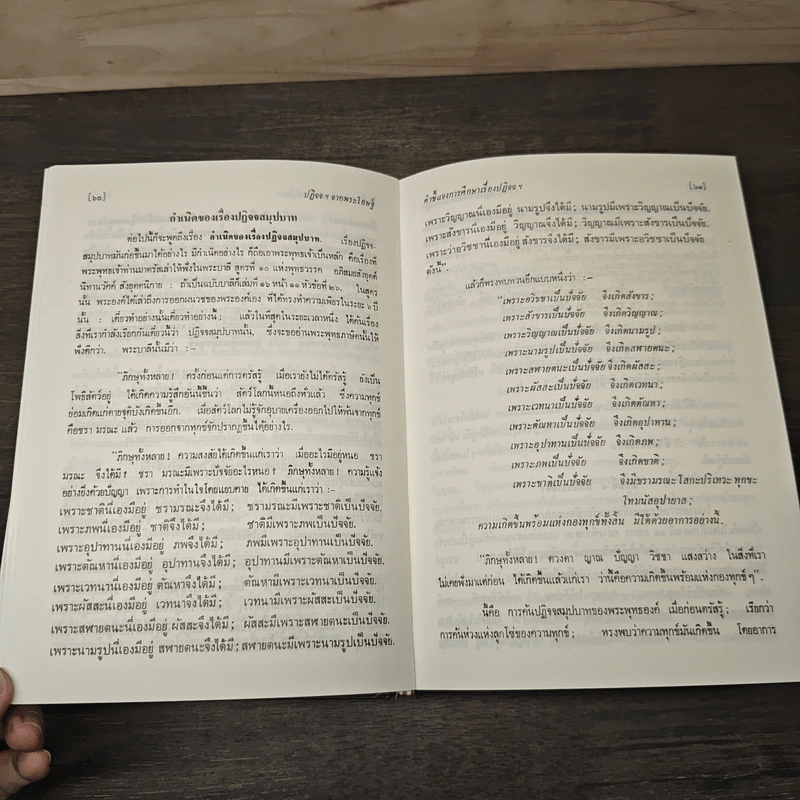 [๖๐] ปฏิจจฯ จากพระโอษฐ์
กำเนิดของเรื่องปฏิจจสมุปบาท
ต่อไปนี้ก็จะพูดถึงเรื่อง กำเนิดของเรื่องปฏิจจสมุปบาท. เรื่องปฏิจจ-
สมุปบาทมันก่อขึ้นมาได้อย่างไร มีกำเนิดอย่างไร ก็ถือเอาพระพุทธเจ้าเป็นหลัก คือเรื่องที่
พระพุทธเจ้าท่านมาตรัสเล่าให้ฟังในพระบาลี สูตรที่ ๑๐ แห่งพุทธวรรค อภิสมยสังยุตต์
นิทานวัคค์ สังยุตตนิกาย : ถ้าเป็นฉบับบาลีก็เล่มที่ ๑๖ หน้า ๑๑ หัวข้อที่ ๒๖. ในสูตร
นั้น พระองค์ได้เล่าถึงการออกผนวชของพระองค์เอง ที่ได้ทรงทำความเพียรในระยะ ๖ ปี
นั้น : เดี๋ยวทำอย่างนั้นเดี๋ยวทำอย่างนี้ ; แล้วในที่สุดในระยะเวลาหนึ่ง ได้ค้นเรื่อง
สิ่งที่เรากำลังเรียกกันเดี๋ยวนี้ว่า ปฏิจจสมุปบาทนั้น, ซึ่งจะขออ่านพระพุทธภาษิตนั้นให้
ฟังดีกว่า. พระบาลีนั้นมีว่า : –
"ภิกษุทั้งหลาย ! ครั้งก่อนแต่การตรัสรู้ เมื่อเรายังไม่ได้ตรัสรู้ ยังเป็น
โพธิสัตว์อยู่ ได้เกิดความรู้สึกอันนี้ขึ้นว่า สัตว์โลกนี้หนอถึงทั่วแล้ว ซึ่งความทุกข์
ย่อมเกิดแก่ตายจุติบังเกิดขึ้นอีก. เมื่อสัตว์โลกไม่รู้จักอุบายเครื่องออกไปให้พ้นจากทุกข์
คือชรา มรณะ แล้ว การออกจากทุกข์จักปรากฏขึ้นได้อย่างไร.
"ภิกษุทั้งหลาย ! ความสงสัยได้เกิดขึ้นแก่เราว่า เมื่ออะไรมีอยู่หนอ ชรา
มรณะ จึงได้มี ? ชรา มรณะมีเพราะปัจจัยอะไรหนอ ? ภิกษุทั้งหลาย ! ความรู้แจ้ง
อย่างยิ่งด้วยปัญญา เพราะการทำในใจโดยแยบคาย ได้เกิดขึ้นแก่เราว่า : –
เพราะชาตินี่เองมีอยู่ ชรามรณะจึงได้มี ; ชรามรณะมีเพราะชาติเป็นปัจจัย.
เพราะภพนี่เองมีอยู่ ชาติจึงได้มี ; ชาติมีเพราะภพเป็นปัจจัย.
เพราะอุปาทานนี่เองมีอยู่ ภพจึงได้มี ; ภพมีเพราะอุปาทานเป็นปัจจัย.
เพราะตัณหานี่เองมีอยู่ อุปาทานจึงได้มี ; อุปาทานมีเพราะตัณหาเป็นปัจจัย.
เพราะเวทนานี่เองมีอยู่ ตัณหาจึงได้มี ; ตัณหามีเพราะเวทนาเป็นปัจจัย.
เพราะผัสสะนี่เองมีอยู่ เวทนาจึงได้มี ; เวทนามีเพราะผัสสะเป็นปัจจัย.
เพราะสฬายตนะนี่เองมีอยู่ ผัสสะจึงได้มี ; ผัสสะมีเพราะสฬายตนะเป็นปัจจัย.
เพราะนามรูปนี่เองมีอยู่ สฬายตนะจึงได้มี ; สฬายตนะมีเพราะนามรูปเป็นปัจจัย.
คำชี้แจงการศึกษาเรื่องปฏิจจฯ [๖๑]
เพราะวิญญาณนี่เองมีอยู่ นามรูปจึงได้มี ; นามรูปมีเพราะวิญญาณเป็นปัจจัย.
เพราะสังขารนี่เองมีอยู่ วิญญาณจึงได้มี ; วิญญาณมีเพราะสังขารเป็นปัจจัย.
เพราะว่าอวิชชานี่เองมีอยู่ สังขารจึงได้มี ; สังขารมีเพราะอวิชชาเป็นปัจจัย
ดังนี้".
แล้วก็ทรงทบทวนอีกแบบหนึ่งว่า : –
"เพราะอวิชชาเป็นปัจจัย จึงเกิดสังขาร ;
เพราะสังขารเป็นปัจจัย จึงเกิดวิญญาณ ;
เพราะวิญญาณเป็นปัจจัย จึงเกิดนามรูป ;
เพราะนามรูปเป็นปัจจัย จึงเกิดสฬายตนะ ;
เพราะสฬายตนะเป็นปัจจัย จึงเกิดผัสสะ ;
เพราะผัสสะเป็นปัจจัย จึงเกิดเวทนา ;
เพราะเวทนาเป็นปัจจัย จึงเกิดตัณหา ;
เพราะตัณหาเป็นปัจจัย จึงเกิดอุปาทาน ;
เพราะอุปาทานเป็นปัจจัย จึงเกิดภพ ;
เพราะภพเป็นปัจจัย จึงเกิดชาติ ;
เพราะชาติเป็นปัจจัย จึงมีชรามรณะ โสกะปริเทวะ ทุกขะ
โทมนัสอุปายาส ;
ความเกิดขึ้นพร้อมแห่งกองทุกข์ทั้งสิ้น มีได้ด้วยอาการอย่างนี้.
"ภิกษุทั้งหลาย ! ดวงตา ญาณ ปัญญา วิชชา แสงสว่าง ในสิ่งที่เรา
ไม่เคยฟังมาแต่ก่อน ได้เกิดขึ้นแล้วแก่เรา ว่านี้คือความเกิดขึ้นพร้อมแห่งกองทุกข์ ๆ".
นี้คือ การค้นปฏิจจสมุปบาทของพระพุทธองค์ เมื่อก่อนตรัสรู้ ; เรียกว่า
การค้นห่วงแห่งลูกโซ่ของความทุกข์ ; ทรงพบว่าความทุกข์มันเกิดขึ้น โดยอาการ